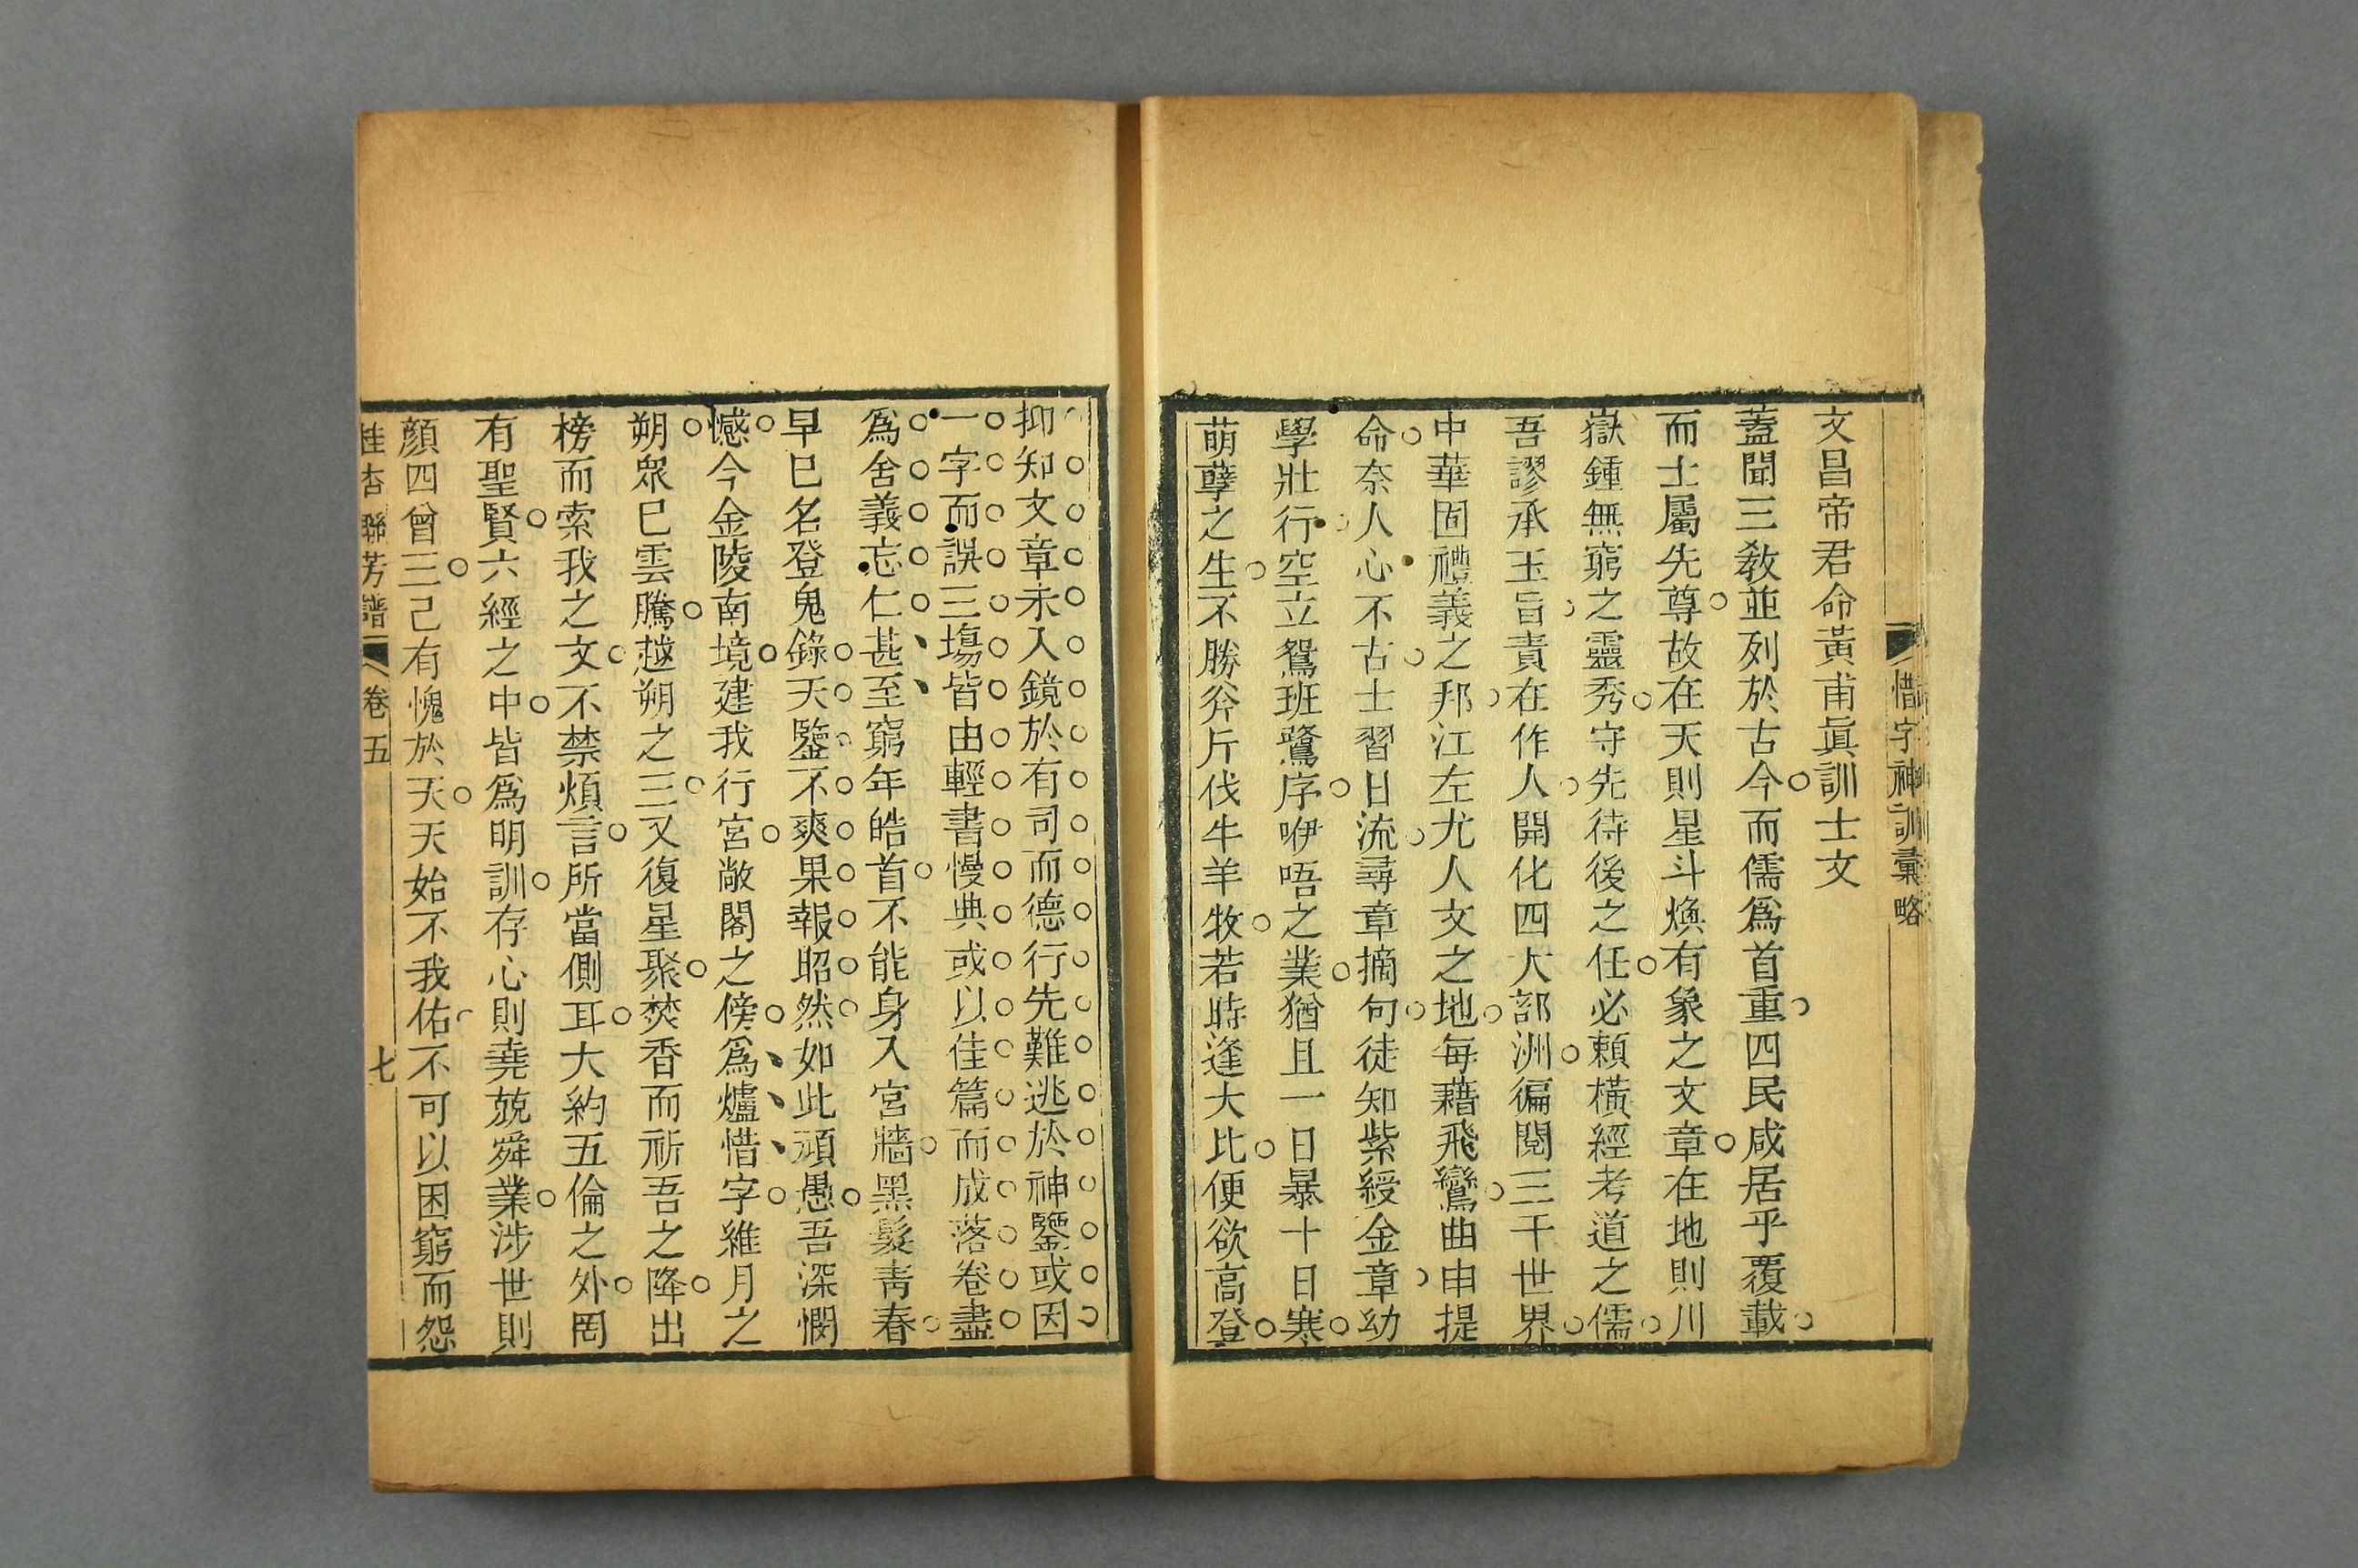 惜字神訓彙略
文昌帝君命黃甫眞訓士文
蓋聞三教並列於古今而儒爲首重四民咸居乎覆載
而士屬先尊故在天則星斗煥有象之文章在地則川
嶽鍾無窮之靈秀守先待後之任必賴橫經考道之儒
吾謬承玉旨責在作人開化四大部洲徧閱三千世界
中華固禮義之邦江左尤人文之地每藉飛鸞曲申提
命奈人心不古士習日流尋章摘句徒知紫綬金章幼
學壯行空立鴛班鷺序咿唔之業猶且一日暴十日寒
萌孽之生不勝斧斤伐牛羊牧若時逢大比便欲高登
抑知文章未入鏡於有司而德行先難逃於神鑒或因
一字而誤三塲皆由輕書慢典或以佳篇而成落卷盡
爲舍義忘仁甚至窮年皓首不能身入宮牆黑髮靑春
早已名登鬼錄天鑒不爽果報昭然如此頑愚吾深憫
憾今金陵南境建我行宮敞閣之傍爲爐惜字維月之
朔衆已雲騰越朔之三又復星聚焚香而祈吾之降出
榜而索我之文不禁煩言所當側耳大約五倫之外罔
有聖賢六經之中皆爲明訓存心則堯兢舜業涉世則
顏四曾三己有愧於天天始不我佑不可以困窮而怨
桂杏聯芳譜
卷五
七